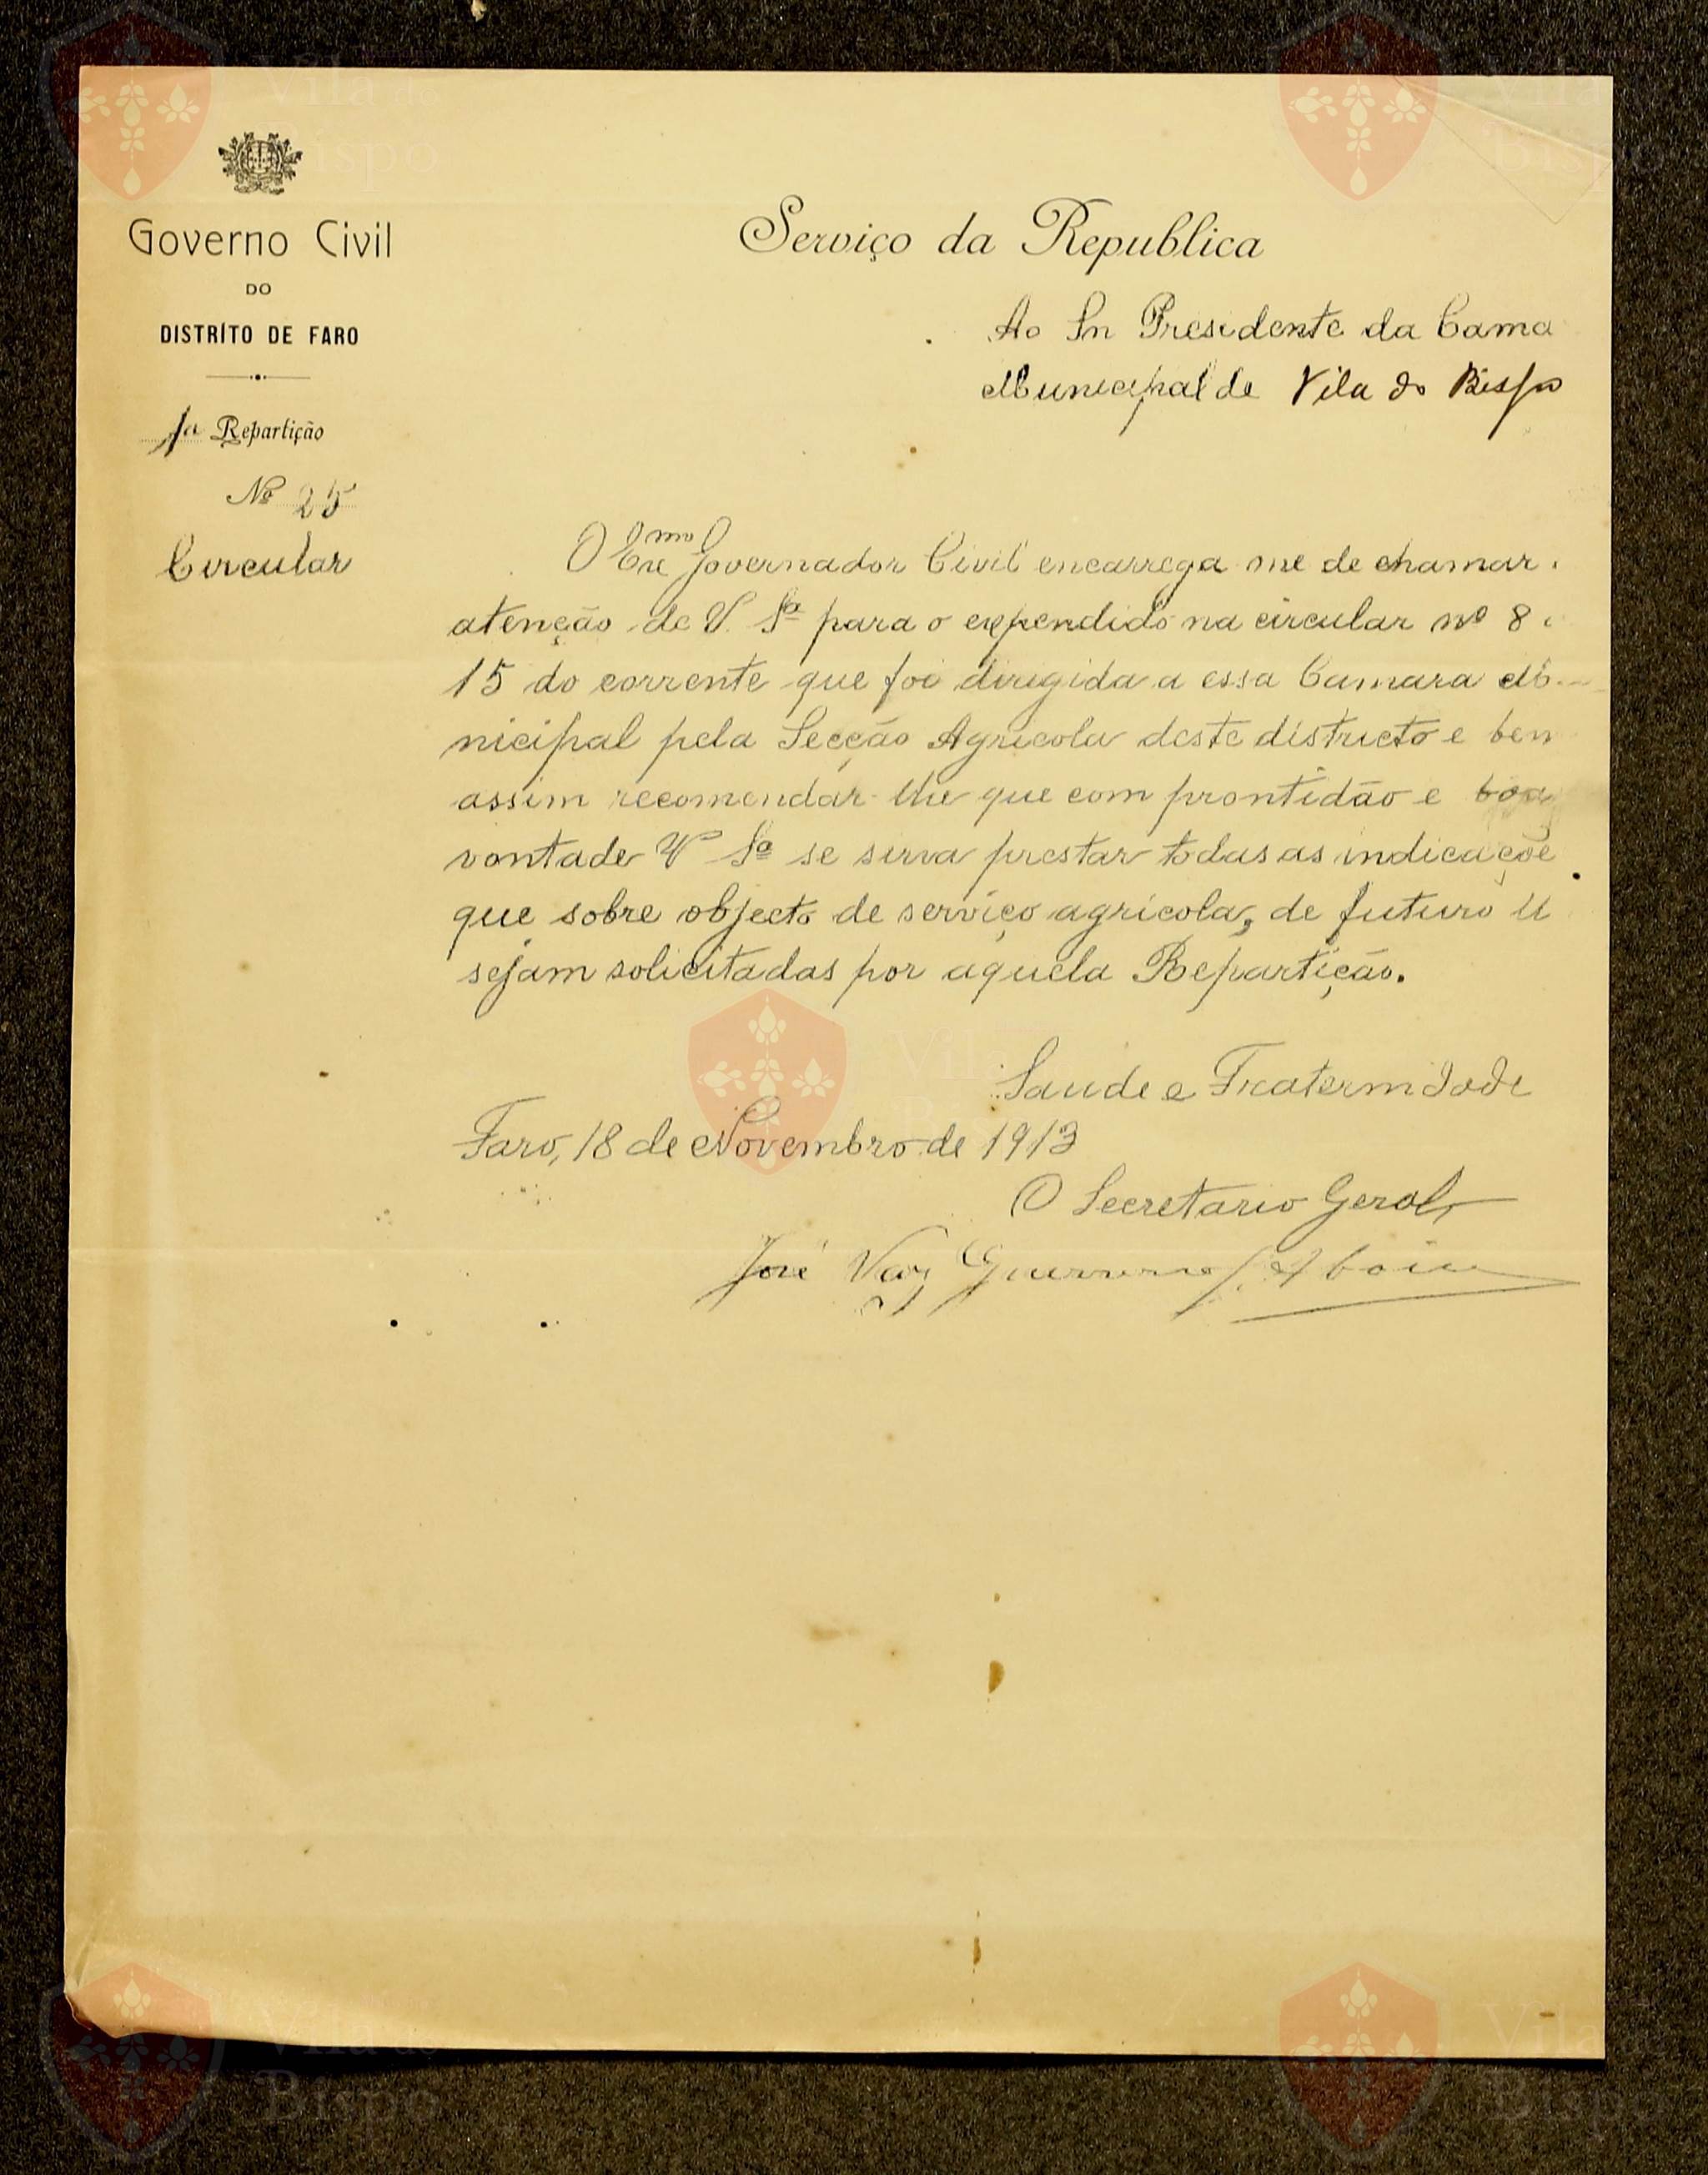 Governo Civil
DO
DISTRÍTO DE FARO
1ª Repartição
Nº 25
Circular
Serviço da Republica
Ao Sn Presidente da Cama
Municipal de Vila do Bispo
O Exmo Governador Civil encarrega me de chamar
atenção de V. Sª para o expendido na circular nº 8
15 do corrente que foi dirigida a essa Camara M
nicipal pela Secção Agricola deste districto e bem
assim recomendar-lhe que com prontidão e boa
vontade V Sª se sirva prestar todas as indicaçõe
que sobre objecto de serviço agricola, de futuro lh
sejam solicitadas por aquela Repartição.
Saude e Fraternidade
Faro, 18 de Novembro de 1913
O Secretario Geral,
José Vaz Guerreiro J. Aboim
Vila do
Bispo